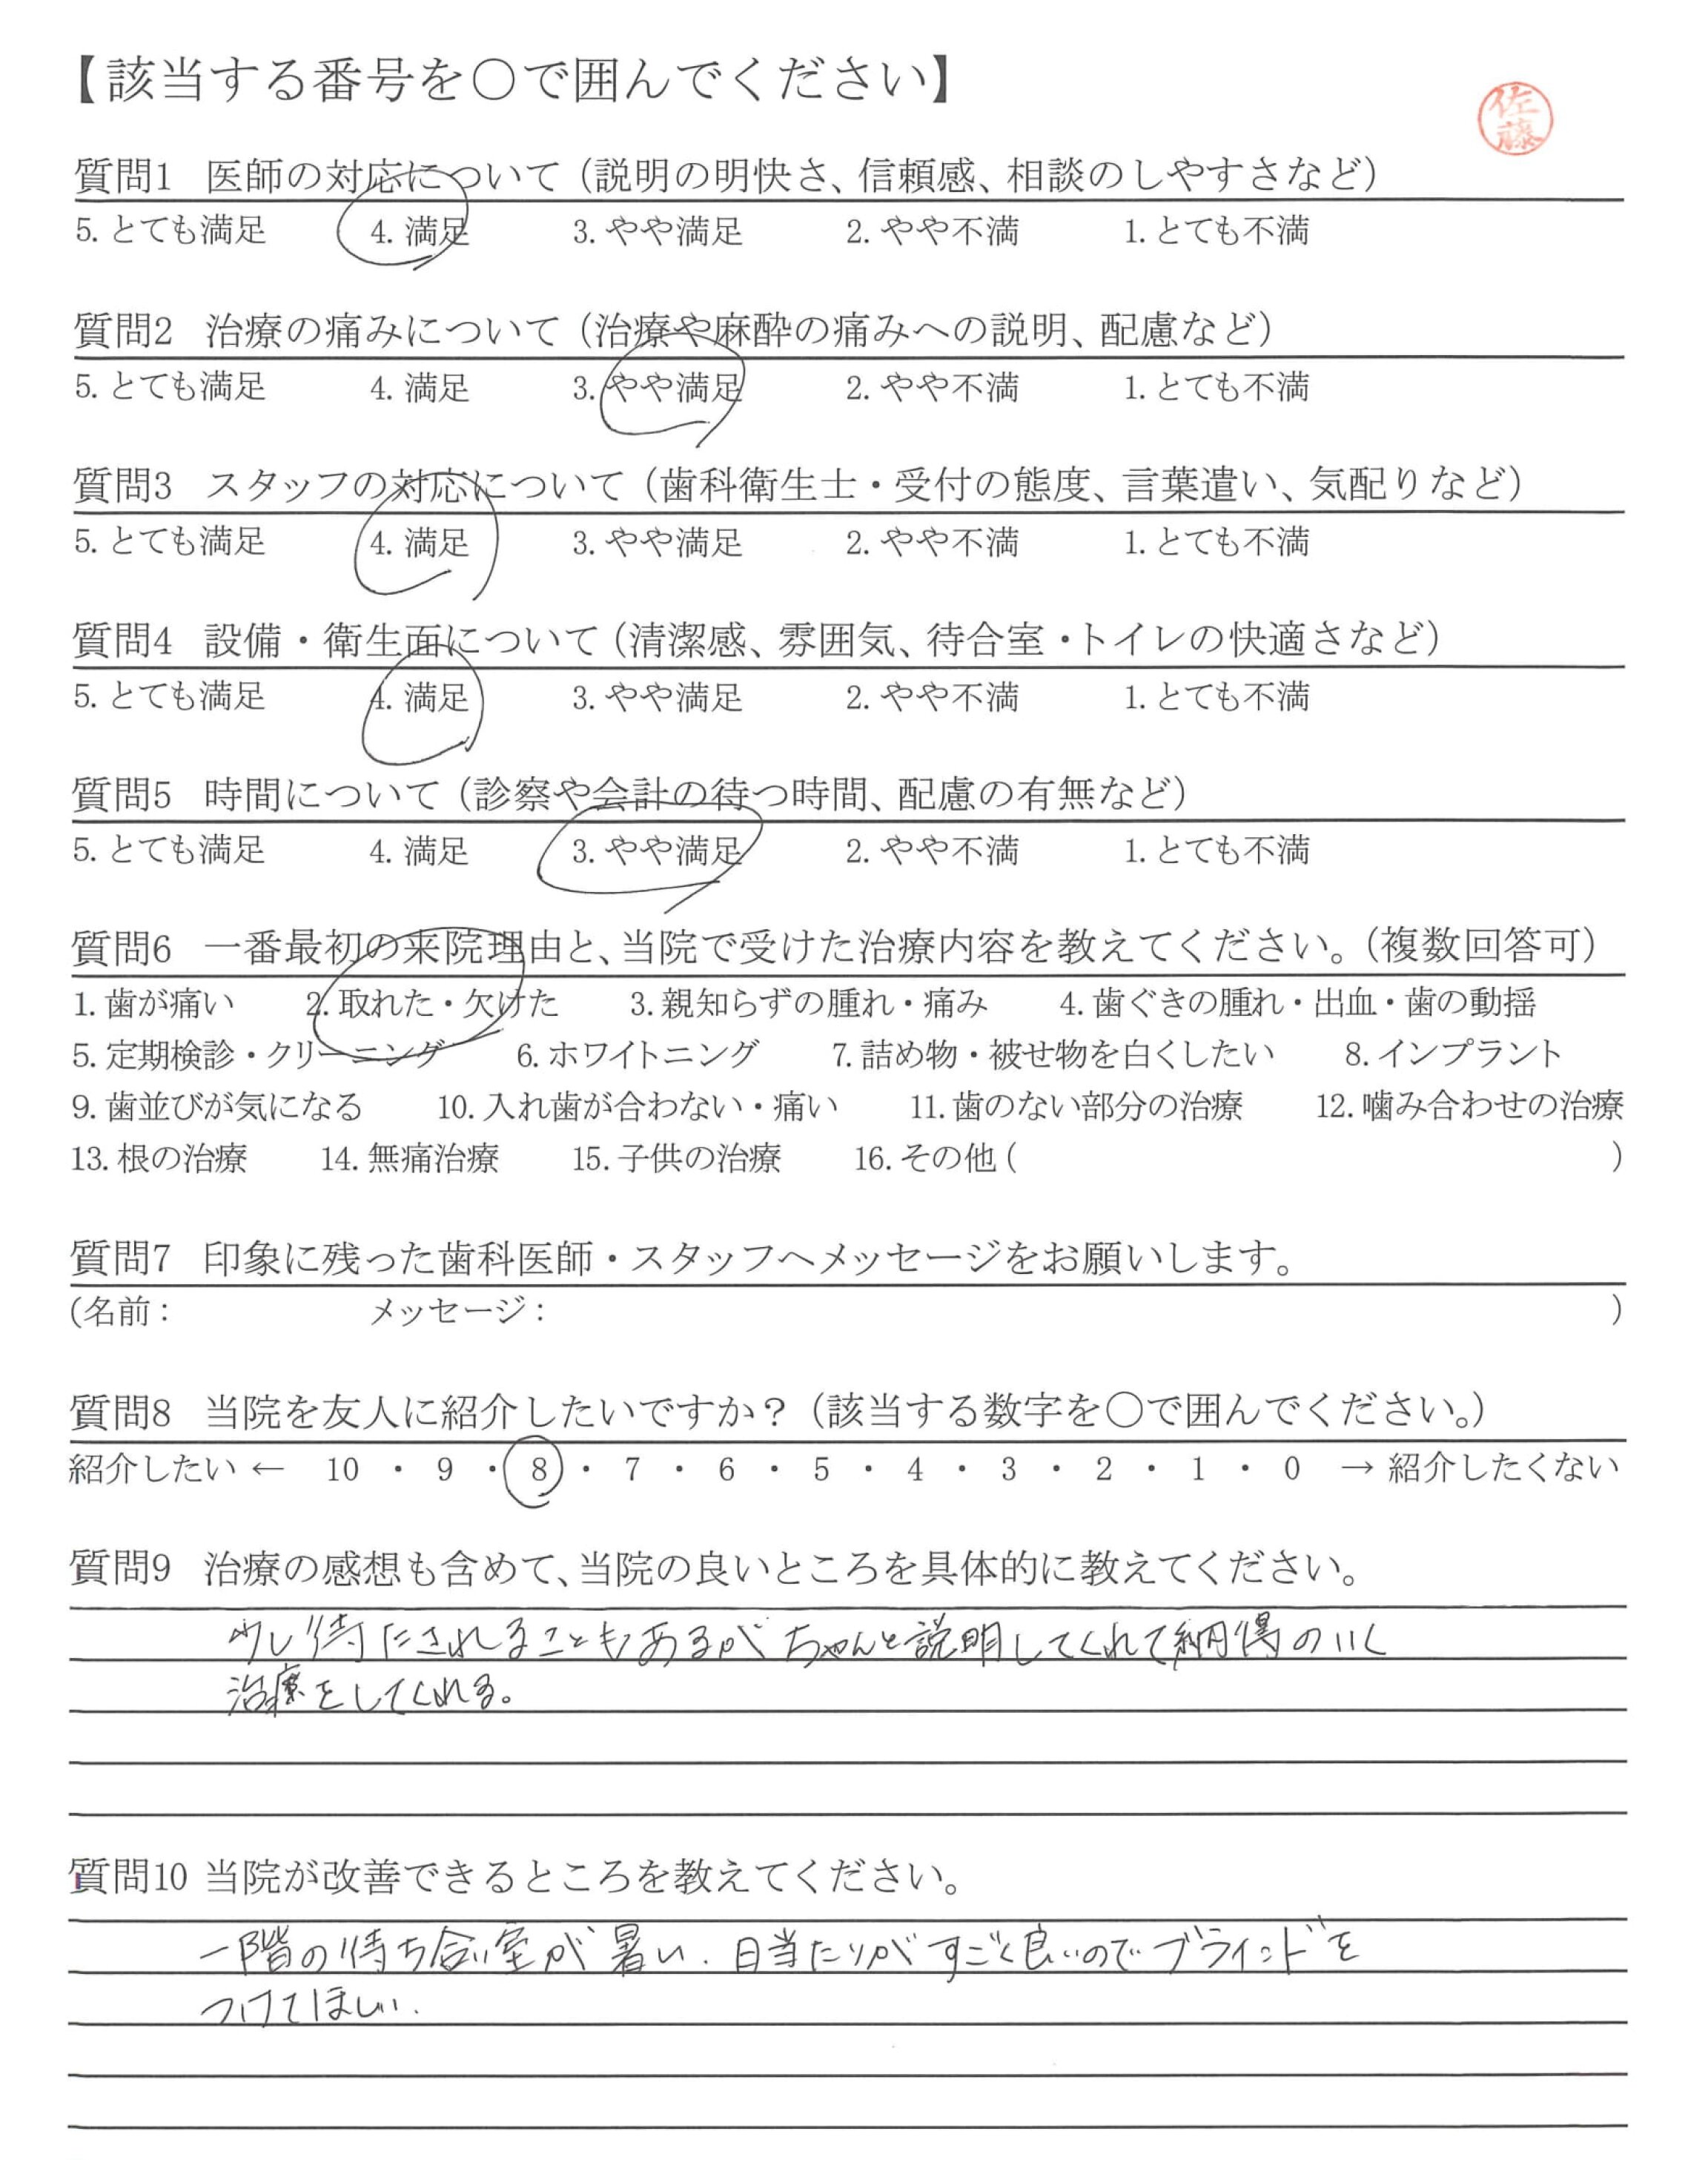 【該当する番号を〇で囲んでください】
佐藤
質問1 医師の対応について（説明の明快さ、信頼感、相談のしやすさなど）
5. とても満足 4. 満足 3. やや満足 2. やや不満 1. とても不満
質問2 治療の痛みについて（治療や麻酔の痛みへの説明、配慮など）
5. とても満足 4. 満足 3. やや満足 2. やや不満 1. とても不満
質問3 スタッフの対応について（歯科衛生士・受付の態度、言葉遣い、気配りなど）
5. とても満足 4. 満足 3. やや満足 2. やや不満 1. とても不満
質問4 設備・衛生面について（清潔感、雰囲気、待合室・トイレの快適さなど）
5. とても満足 4. 満足 3. やや満足 2. やや不満 1. とても不満
質問5 時間について（診察や会計の待つ時間、配慮の有無など）
5. とても満足 4. 満足 3. やや満足 2. やや不満 1. とても不満
質問6 一番最初の来院理由と、当院で受けた治療内容を教えてください。（複数回答可）
1. 歯が痛い 2. 取れた・欠けた 3. 親知らずの腫れ・痛み 4. 歯ぐきの腫れ・出血・歯の動揺
5. 定期検診・クリーニング 6. ホワイトニング 7. 詰め物・被せ物を白くしたい 8. インプラント
9. 歯並びが気になる 10. 入れ歯が合わない・痛い 11. 歯のない部分の治療 12. 噛み合わせの治療
13. 根の治療 14. 無痛治療 15. 子供の治療 16. その他（ ）
質問7 印象に残った歯科医師・スタッフへメッセージをお願いします。
（名前： メッセージ： ）
質問8 当院を友人に紹介したいですか？（該当する数字を〇で囲んでください。）
紹介したい ← 10 ・ 9 ・ 8 ・ 7 ・ 6 ・ 5 ・ 4 ・ 3 ・ 2 ・ 1 ・ 0 → 紹介したくない
質問9 治療の感想も含めて、当院の良いところを具体的に教えてください。
少し待たされることもあるが ちゃんと説明してくれて納得のいく
治療をしてくれる。
質問10 当院が改善できるところを教えてください。
一階の待ち合い室が暑い. 日当たりがすごく良いのでブラインドを
つけてほしい.